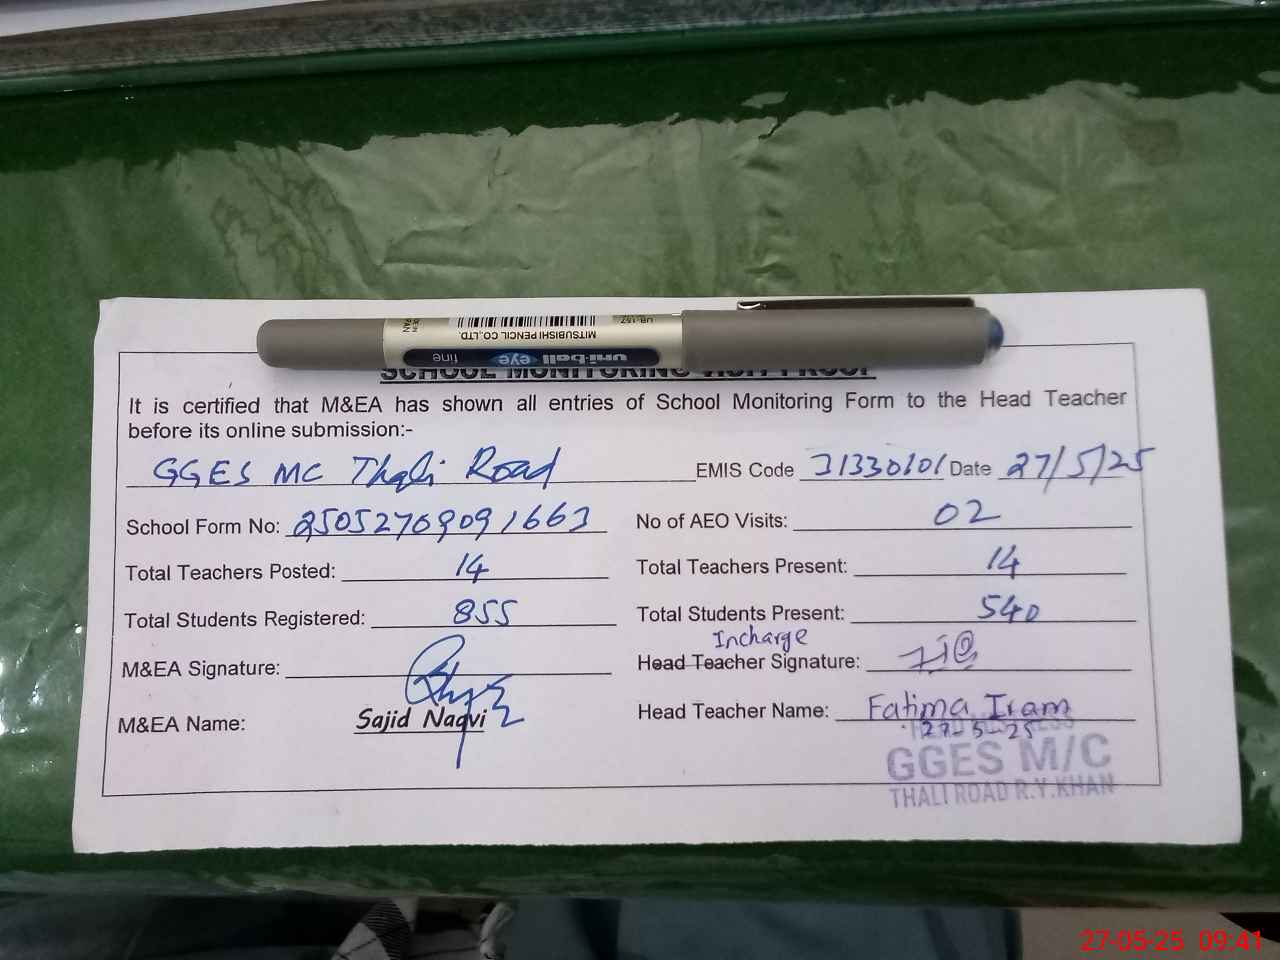 MADE IN JAPAN
MITSUBISHI PENCIL CO., LTD.
UB-157
uni-ball eye fine
SCHOOL MONITORING VISIT PROOF
It is certified that M&EA has shown all entries of School Monitoring Form to the Head Teacher
before its online submission:-
GGES MC Thali Road EMIS Code 31330101 Date 27/5/25
School Form No: 25052709091663 No of AEO Visits: 02
Total Teachers Posted: 14 Total Teachers Present: 14
Total Students Registered: 855 Total Students Present: 540
Incharge
M&EA Signature: Head Teacher Signature:
M&EA Name: Sajid Naqvi Head Teacher Name: Fatima Iram
27-5-25
GGES M/C
THALI ROAD R.Y.KHAN
27-05-25 09:41